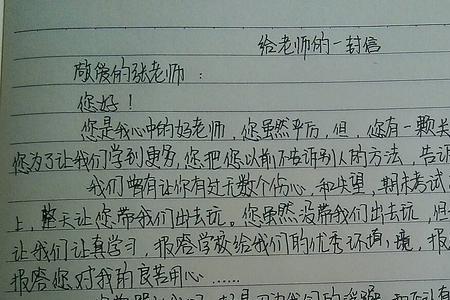 给老师的一封信
敬爱的张老师：
您好！
您是我心中的好老师，您虽然平厉，但，您有一颗关
您为了让我们学到更多，您把您以前不告诉别人的方法，告诉
我们曾有让你有过无数个伤心，和失望，期末考试
上，整天让您带我们出去玩。您虽然没带我们出去玩，但
让我们认真学习，报答学校给我们的优秀环境，报
报答您对我的良苦用心……